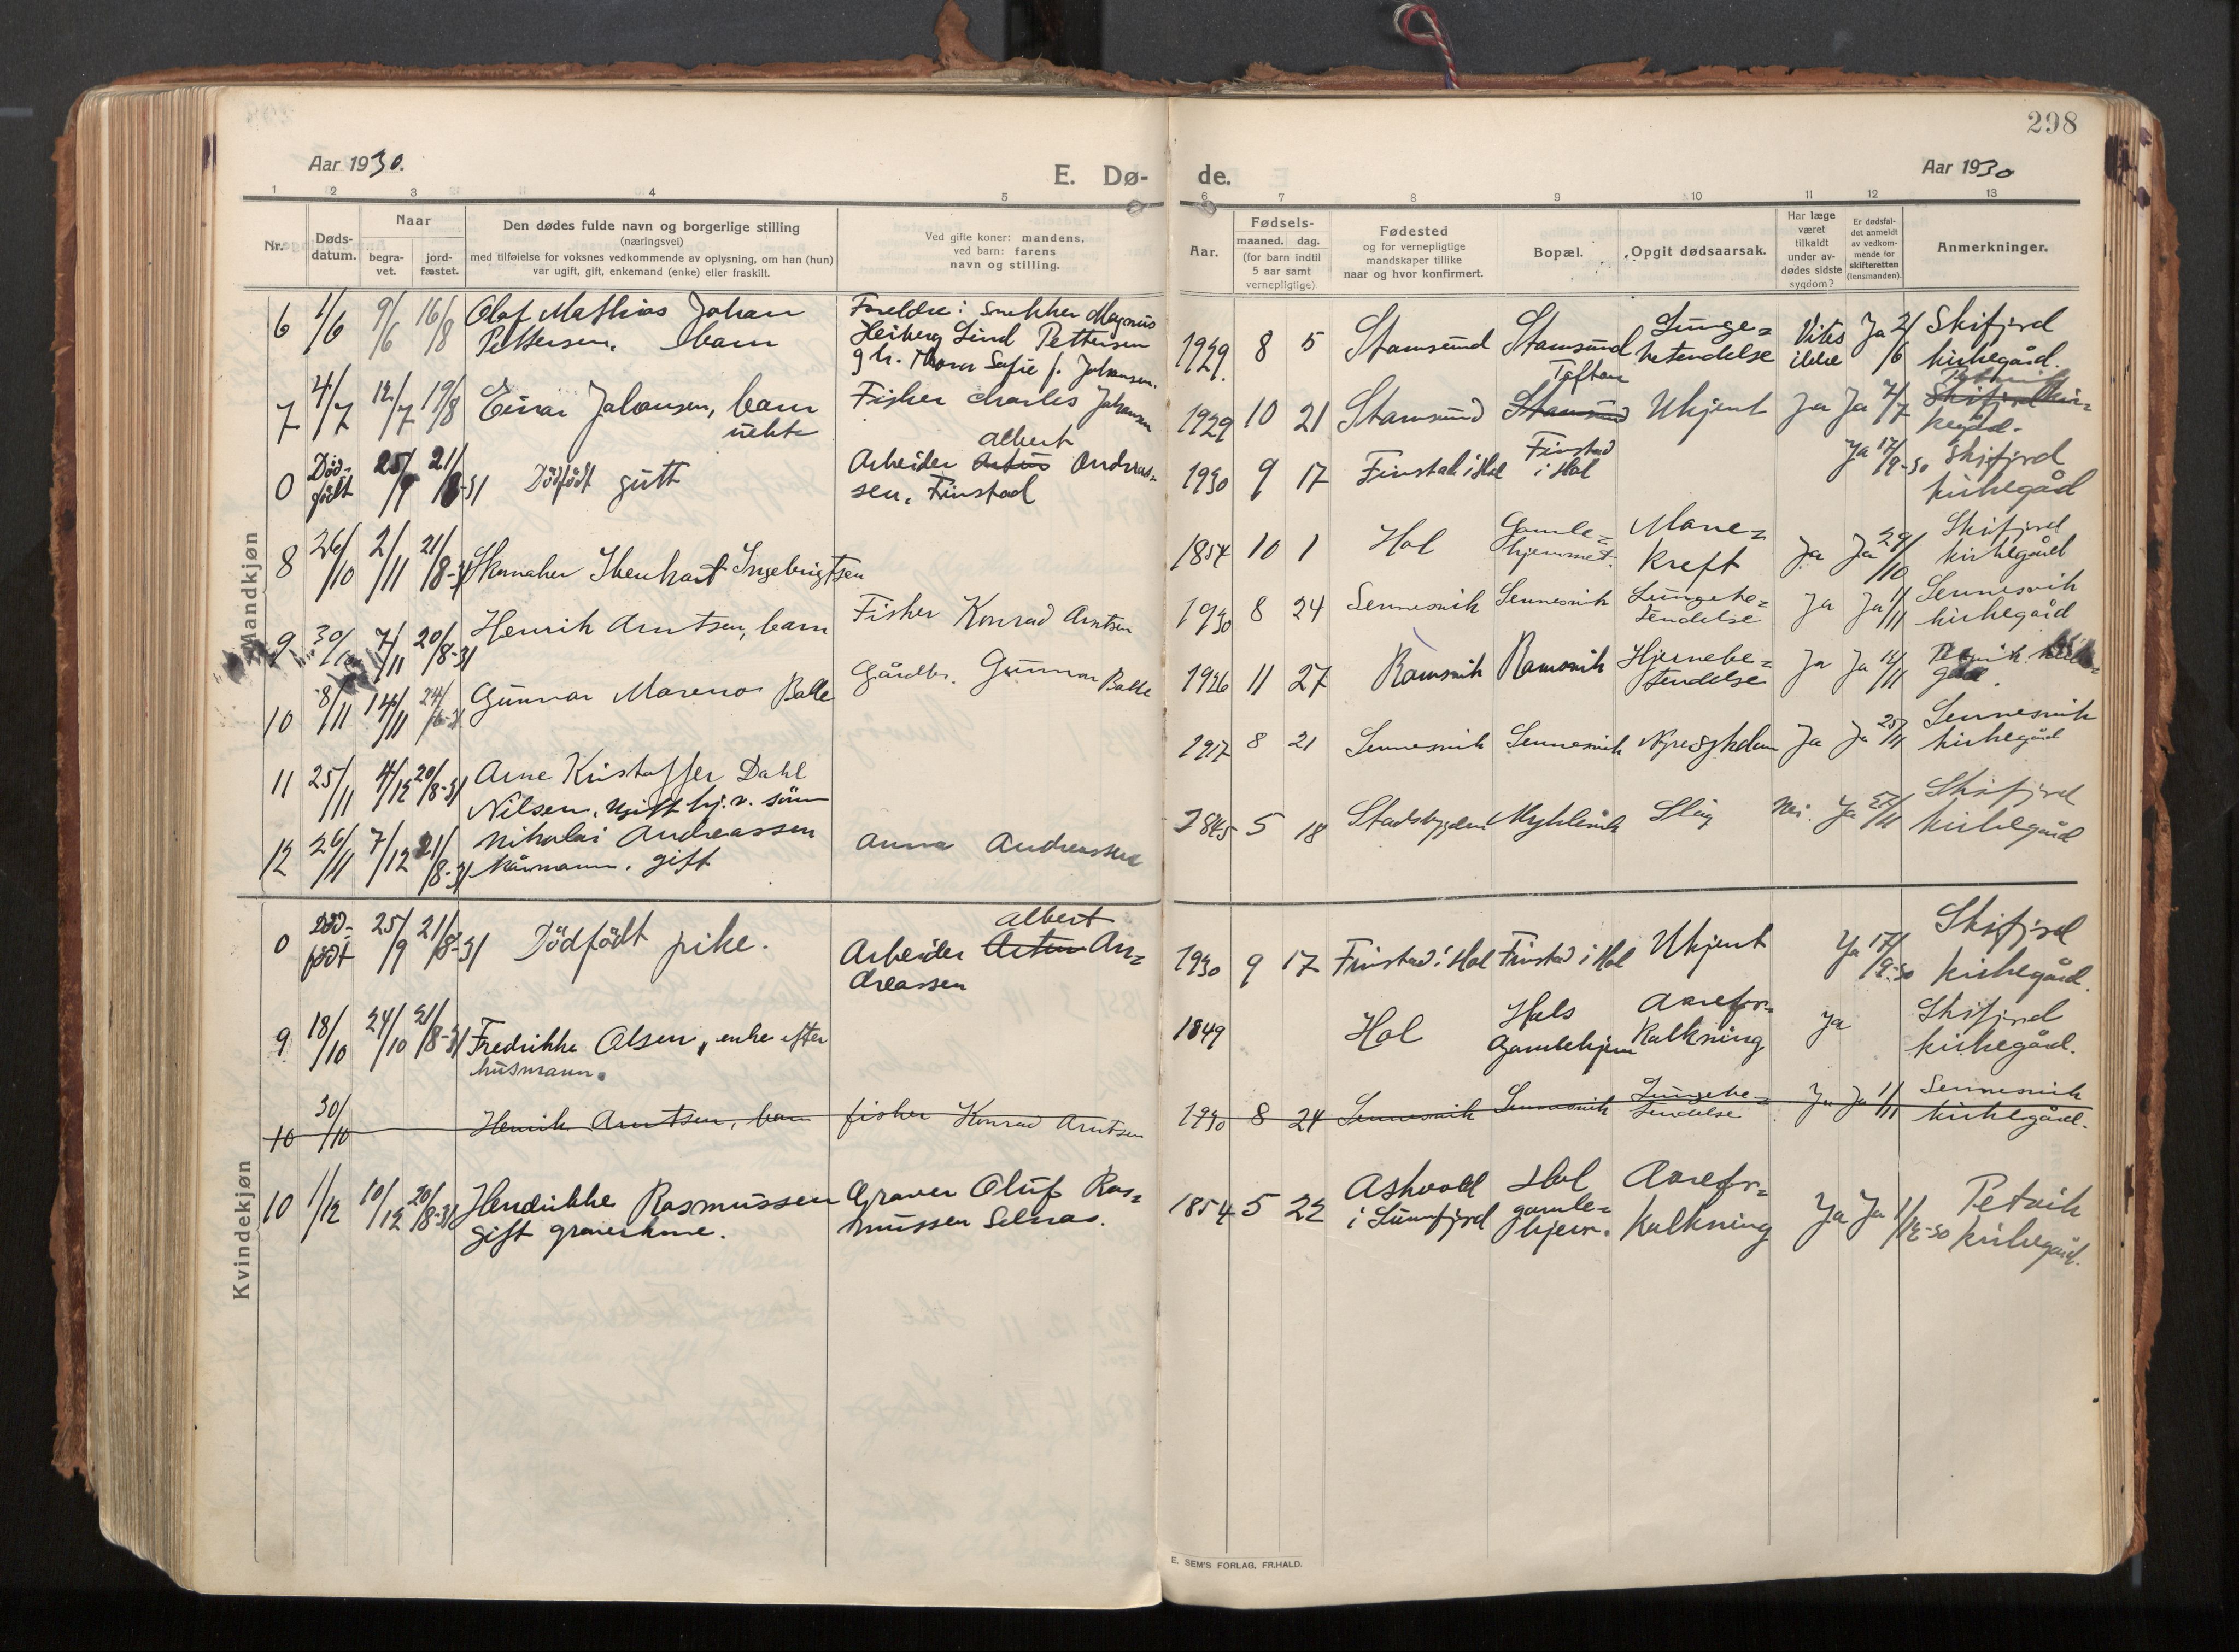 298
Aar 1930.
E. Dø-
de.
Aar 1930
1 2 3 4 5
6 7 8 9 10 11 12 13
Nr.
Døds-
datum.
Naar
begra-
vet.
jord-
fæstet.
Den dødes fulde navn og borgerlige stilling
(næringsvei)
med tilføielse for voksnes vedkommende av oplysning, om han (hun)
var ugift, gift, enkemand (enke) eller fraskilt.
Ved gifte koner: mandens,
ved barn: farens
navn og stilling.
Aar.
Fødsels-
maaned. dag.
(for barn indtil
5 aar samt
vernepligtige)
Fødested
og for vernepligtige
mandskaper tillike
naar og hvor konfirmert.
Bopæl.
Opgit dødsaarsak.
Har læge
været
tilkaldt
under av-
dødes sidste
sygdom?
Er dødsfal-
det anmeldt
av vedkom-
mende for
skifteretten
(lensmanden).
Anmerkninger.
Mandkjøn
6 1/6 9/6 16/8 Olaf Mathias Johan
Pettersen. barn
Foreldre: Snekker Magnus
Heiberg Lind Pettersen
g h. Thora Sofie f. Johansen.
1929. 8 5 Stamsund Stamsund Lunge=
betendelse Vites
ikke Ja 2/6 Skifjord
kirkegård.
7 4/7 12/7 19/8 Einar Johansen, barn
uekte
Fisker Charles Johansen
1929 10 21 Stamsund Toften
Stamsund Ukjent Ja Ja 7/7 Skifjord kir-
kegård.
0 Død-
født 25/9 21/8-31 Dødfødt gutt
Arbeider Albert Andreas-
sen, Finstad
1930 9 17 Finstad i Hol Finstad
i Hol Ja 17/9-30 Skifjord
kirkegård
8 26/10 2/11 21/8-31 Skomaker Ikenhart Ingebrigtsen
1854 10 1 Hol Gamle=
hjemmet. Mave=
kreft Ja Ja 29/10 Skifjord
kirkegård
9 30/10 7/11 20/8-31 Henrik Arntsen, barn
Fisker Konrad Arntsen
1930 8 24 Sennesvik Sennesvik Lungebe=
tendelse Ja Ja 1/11 Sennesvik
kirkegård
10 8/11 14/11 24/6-31 Gunnar Marenos Balle
Gårdbr. Gunnar Balle
1926 11 27 Ramsvik Ramsvik Hjernebe=
tendelse Ja Ja 12/11 Petvik kirke=
gård.
11 25/11 4/12 20/8-31 Arne Kristoffer Dahl
Nilsen, ugift hj. v. sønn
1917 8 21 Sennesvik Sennesvik Nyresykdom Ja Ja 25/11 Sennesvik
kirkegård
12 26/11 7/12 21/8-31 Nikolai Andreassen
kårmann. gift
Anna Andreassen
1845 5 18 Stadsbygden Myklevik Slag Nei. Ja 27/11 Skifjord
kirkegård
Kvindekjøn
0 Død-
født 25/9 21/8-31 Dødfødt pike.
Arbeider Albert An=
dreassen
1930 9 17 Finstad i Hol Finstad i Hol Ukjent Ja 17/9-30 Skifjord
kirkegård.
9 18/10 24/10 21/8-31 Fredrikke Olsen, enke efter
husmann.
1849 Hol Hols
Gamlehjem Aarefor=
kalkning Ja Skifjord
kirkegård.
10 30/10 Henrik Arntsen, barn fisker Konrad Arntsen
1930 8 24 Sennesvik Sennesvik Lungebe=
tendelse Ja Ja 1/11 Sennesvik
kirkegård.
10 1/12 10/12 20/8-31 Hendrikke Rasmussen
gift graverkone.
Graver Oluf Ras=
mussen Selnas.
1854 5 22 Askvoll
i Sunnfjord Hol
gamle=
hjem. Aarefor=
kalkning Ja Ja 1/12-30 Petvik
kirkegård.
E. SEM'S FORLAG, FR.HALD.